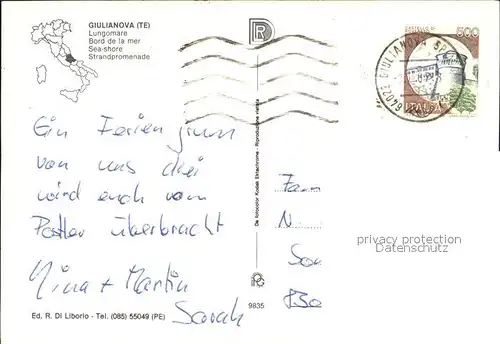 GIULIANOVA (TE)
Lungomare
Bord de la mer
Sea-shore
Strandpromenade
500
ITALIA
64022 GIULIANOVA SP
Ein Feriengruss
von uns drei
wird euch vom
Pöstler überbracht
Nina + Martin
Sarah
Fam
N
Son
privacy protection
Sammlerservice
De fotocolor Kodak Ektachrome - Riproduzione vietata
9835
Ed. R. Di Liborio - Tel. (085) 55049 (PE)